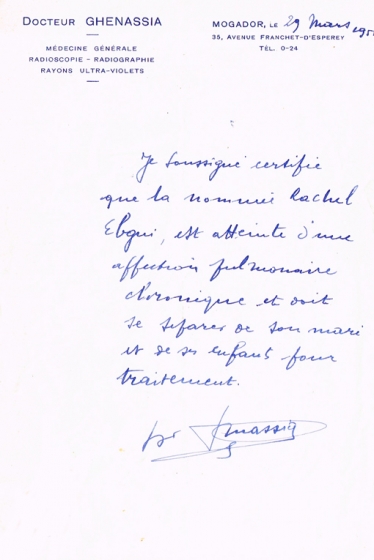 DOCTEUR GHENASSIA
MÉDECINE GÉNÉRALE
RADIOSCOPIE - RADIOGRAPHIE
RAYONS ULTRA-VIOLETS
MOGADOR, LE 29 Mars 195
35, AVENUE FRANCHET-D'ESPEREY
TÉL. 0-24
Je soussigné certifie
que la nommée Rachel
Elgui, est atteinte d'une
affection pulmonaire
chronique et doit
se séparer de son mari
et de ses enfants pour
traitement.